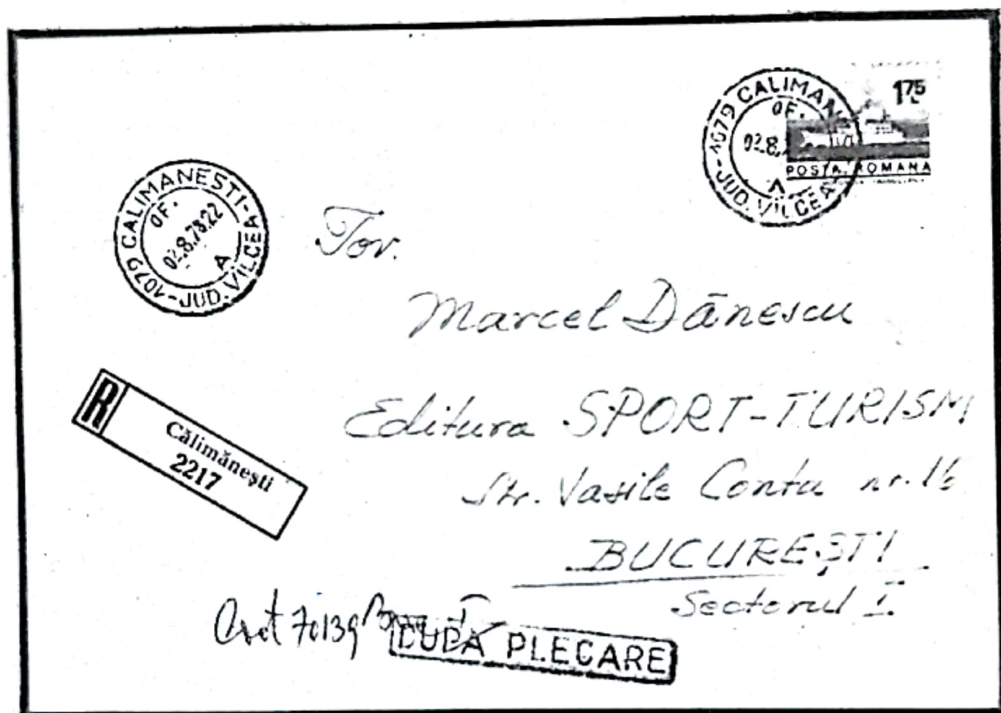 1079 CALIMANESTI-
OF.
02.8.78.22
A
-JUD. VÎLCEA-
1079 CALIMAN
OF.
02.8.
A
-JUD. VÎLCEA
1 75
L
POSTA ROMANA
Tov.
Marcel Dănescu
Editura SPORT-TURISM
Str. Vasile Conta nr. 16
BUCUREȘTI
Sectorul I.
R
Călimănești
2217
70139
DUPĂ PLECARE